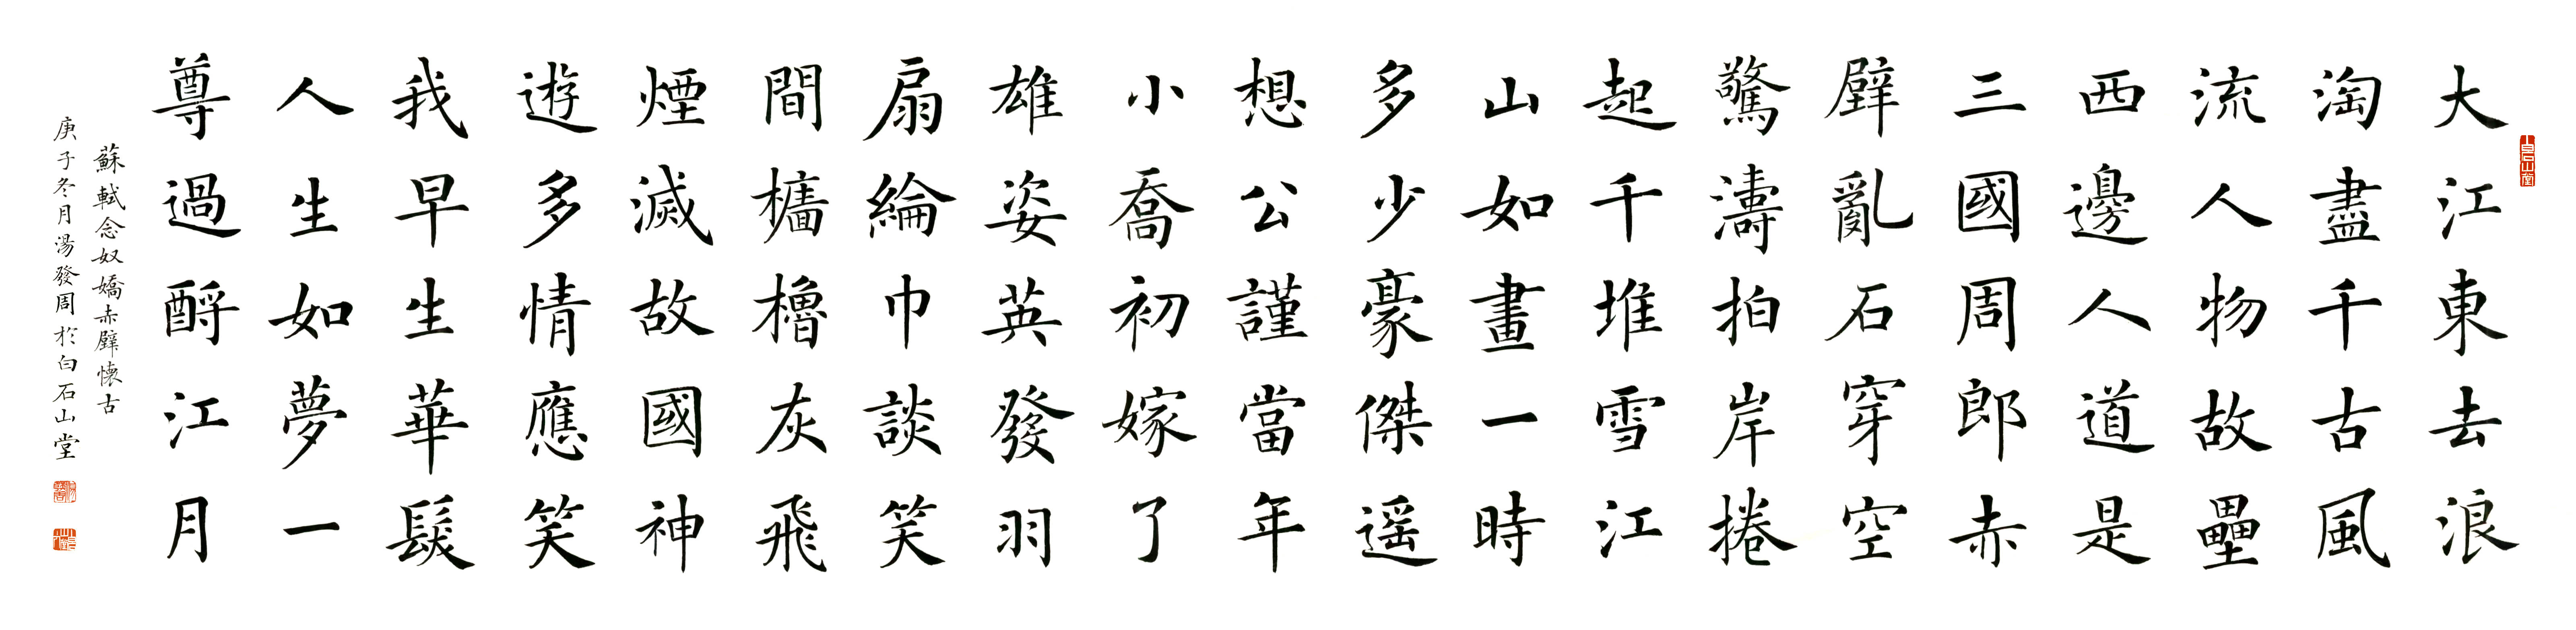 大江東去浪
淘盡千古風
流人物故壘
西邊人道是
三國周郎赤
壁亂石穿空
驚濤拍岸捲
起千堆雪江
山如畫一時
多少豪傑遥
想公謹當年
小喬初嫁了
雄姿英發羽
扇綸巾談笑
間檣櫓灰飛
煙滅故國神
遊多情應笑
我早生華髮
人生如夢一
尊過酹江月
蘇軾念奴嬌赤壁懷古
庚子冬月湯發周於白石山堂